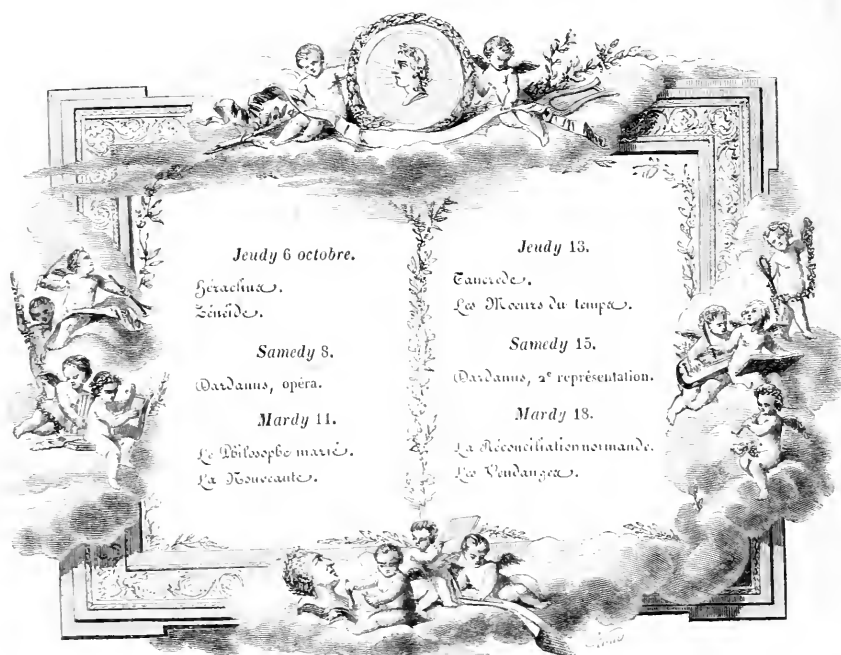 Jeudy 6 octobre.
Héraclius.
Zénéïde.
Samedy 8.
Dardanus, opéra.
Mardy 11.
Le Philosophe marié.
La Nouveauté.
Jeudy 13.
Tancrede.
Les Moeurs du temps.
Samedy 15.
Dardanus, 2e représentation.
Mardy 18.
La Réconciliation normande.
Les Vendanges.